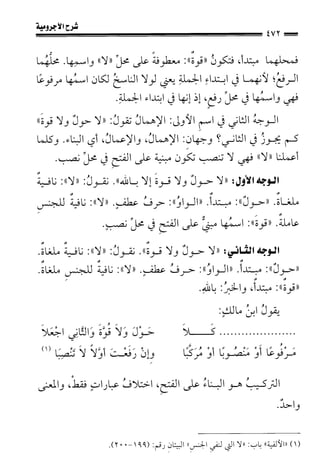 شرح الآجرومية
٤٧٢
فمحلهما مبتدأ، فتكون «قوة»: معطوفة على محلّ «لا» واسمها. محلُّهما
الرفعُ؛ لأنهما في ابتداءِ الجملةِ يعني لولا الناسخُ لكان اسمُها مرفوعًا
فهي واسمُها في محلِّ رفعٍ، إذ إنها في ابتداء الجملةِ.
الـوجـهُ الثاني في اسـمِ الأولى: الإهمالُ تقولُ: «لا حولٌ ولا قوةَ»
كـم يجـوزُ في الثاني؟ وجهان: الإهمالُ، والإعمالُ، أي البناء. وكلما
أعملنا «لا» فهي لا تنصب تكون مبنية على الفتح في محلِّ نصب.
الـوجه الأولُ: «لا حـولٌ ولا قـوةَ إلا بـالله». نقـولُ: «لا»: نافيـةٌ
ملغـاةٌ. «حـولٌ»: مبتـدأٌ. «الـواوُ»: حرفُ عطفٍ. «لا»: نافيةٌ للجنسِ
عاملةٌ. «قوةَ»: اسمُها مبنيٌّ على الفتحِ في محلِّ نصبٍ.
الـوجه الثـاني: «لا حـولٌ ولا قـوةٌ». نقـولُ: «لا»: نافيـةٌ ملغاةٌ.
«حـولٌ»: مبتدأٌ. «الـواوُ»: حـرفُ عطفٍ. «لا»: نافيةٌ للجنسِ ملغاةٌ.
«قوةٌ»: مبتدأ، والخبرُ: باللهِ.
يقولُ ابنُ مالكٍ:
..................... كَـــــلَا حَوْلَ وَلَا قُوَّةَ وَالثَّانِي اجْعَلَا
مَرْفُوعًا أَوْ مَنْصُوبًا أَوْ مُرَكَّبًا وإنْ رَفَعْتَ أَوَّلًا لَا تَنْصِبَا (١)
التركيـبُ هـو البنـاءُ على الفتحِ، اختلافُ عباراتٍ فقـط، والمعنى
واحدٌ.
(١) «الألفية» باب: «لا التي لنفي الجنس» البيتان رقم: (١٩٩-٢٠٠).